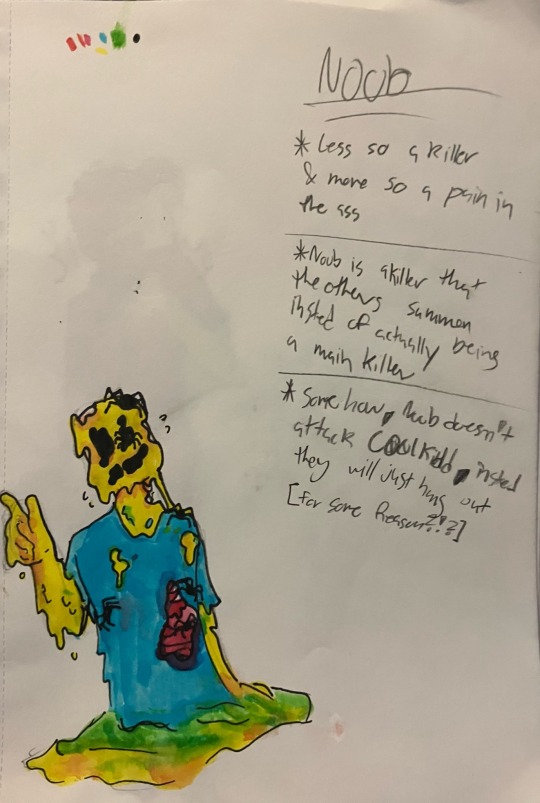 Noob
* Less so a killer
& more so a pain in
the ass
* Noob is a killer that
the others summon
insted of actually being
a main killer
* Some how, Noob doesn't
attack Coolkidd, insted
they will just hang out
[for some Reason?!?]